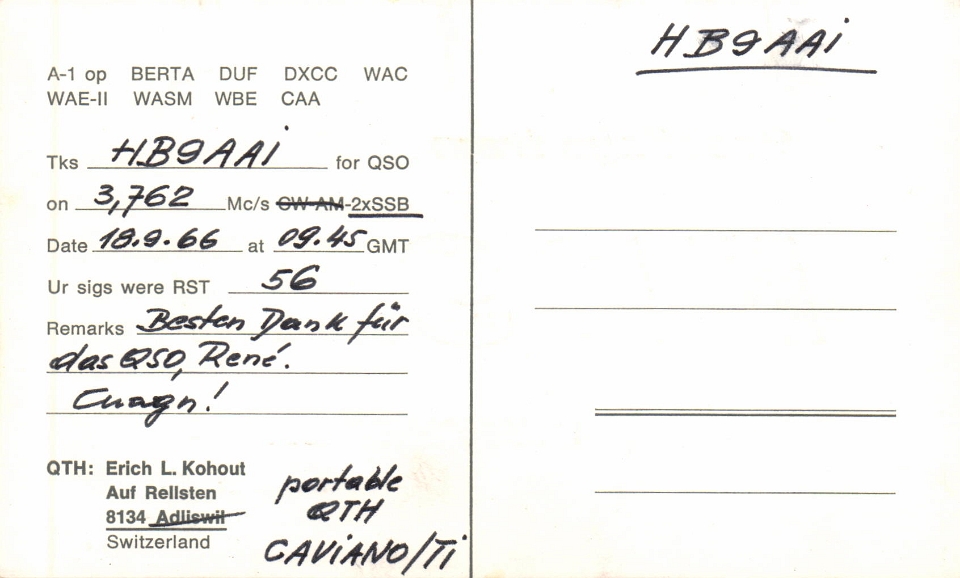 A-1 op BERTA DUF DXCC WAC
WAE-II WASM WBE CAA
Tks HB9AAi for QSO
on 3,762 Mc/s CW-AM-2xSSB
Date 18.9.66 at 09.45 GMT
Ur sigs were RST 56
Remarks Besten Dank für
das QSO, René.
Cuagn!
QTH: Erich L. Kohout
Auf Rellsten
8134 Adliswil
Switzerland
portable
QTH
CAViANO/Ti
HB9AAi